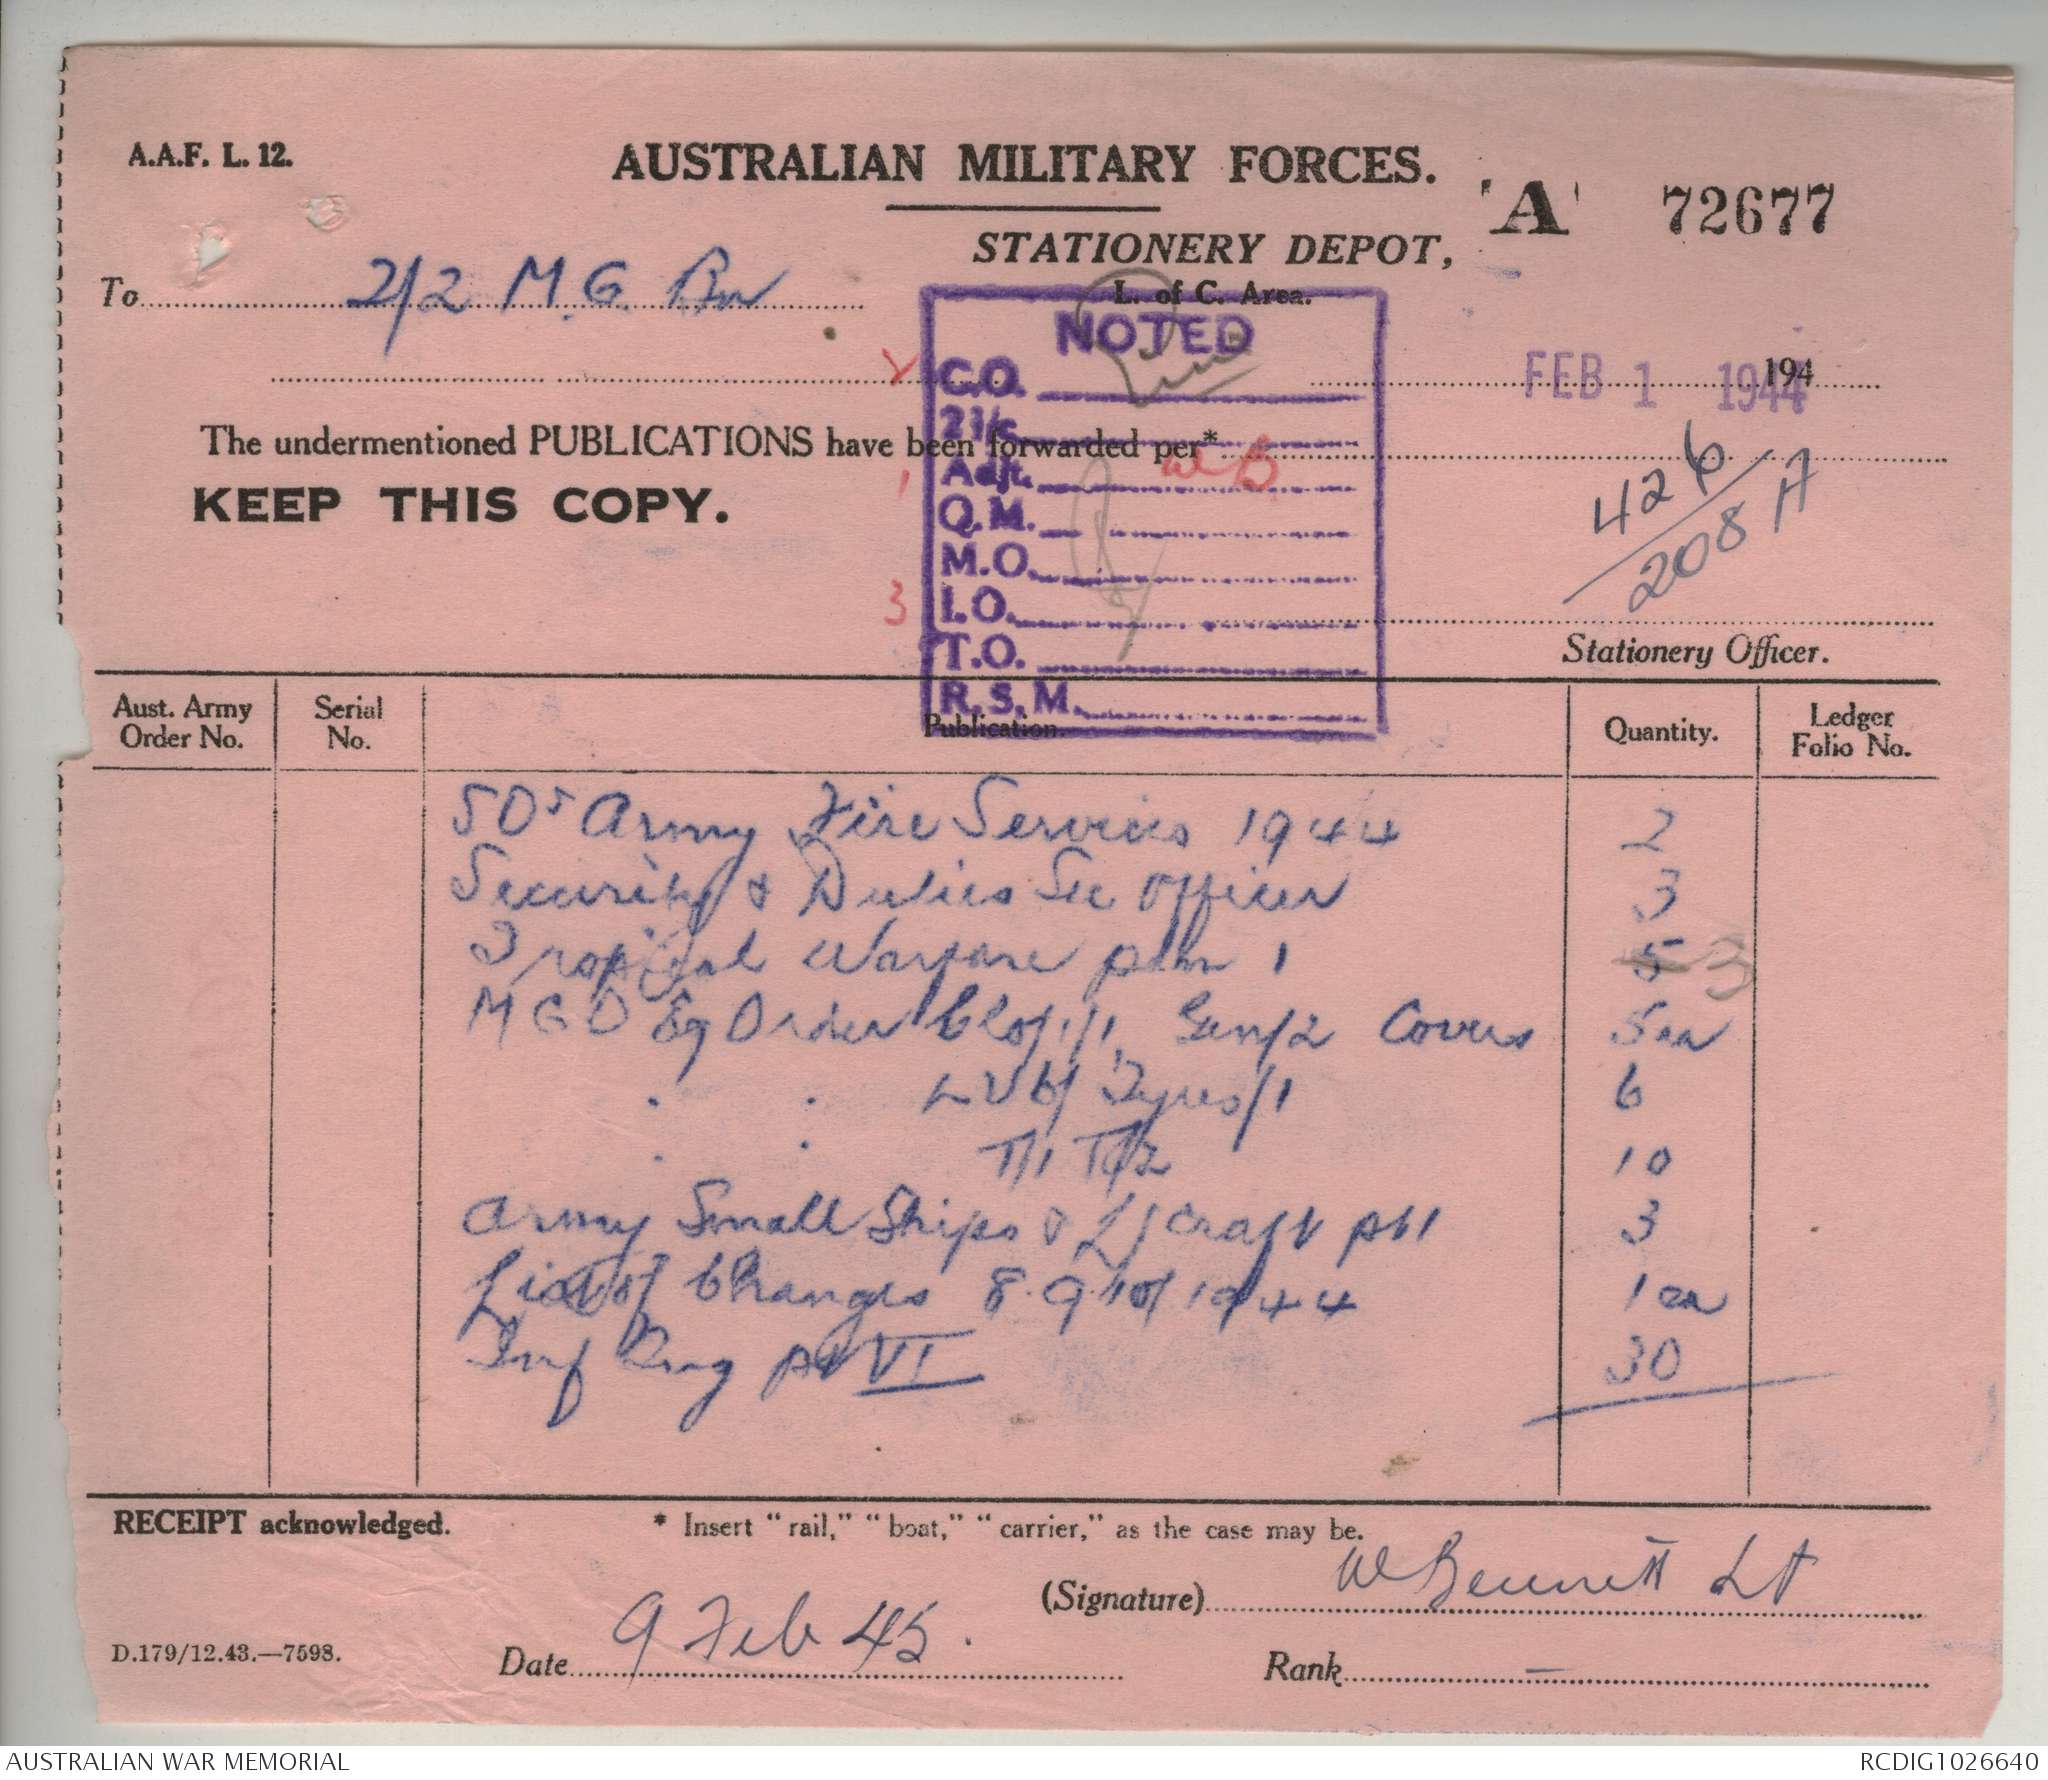 A.A.F. L. 12.
AUSTRALIAN MILITARY FORCES.
'A' 72677
STATIONERY DEPOT,
L. of C. Area.
To 2/2 M.G. Bn
NOTED
C.O.
2 I/c
Adjt. WB
Q.M.
M.O.
I.O.
T.O.
R.S.M.
1
3
FEB 1 1944 194
The undermentioned PUBLICATIONS have been forwarded per*
KEEP THIS COPY.
426
208 A
Stationery Officer.
Aust. Army Order No. Serial No. Publication. Quantity. Ledger Folio No.
SOs Army Fire Services 1944 2
Security & Duties Sec Officer 3
Tropical Warfare pam 1 5 3
MGO Eq Order Clo/1/1, Gen/2 Covers 5 ea
" " Tyres/1 6
" " T/1 10
Army Small Ships & L/craft pt 1 3
List of Changes 8.9.10/1944 1 ea
Inf Trng pt VI 30
RECEIPT acknowledged.
* Insert "rail," "boat," "carrier," as the case may be.
(Signature) W Bennett Lt
D.179/12.43.—7598.
Date 9 Feb 45.
Rank —
AUSTRALIAN WAR MEMORIAL
RCDIG1026640